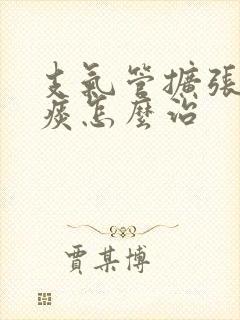 支氣管擴張
痰怎麼治
賈某博